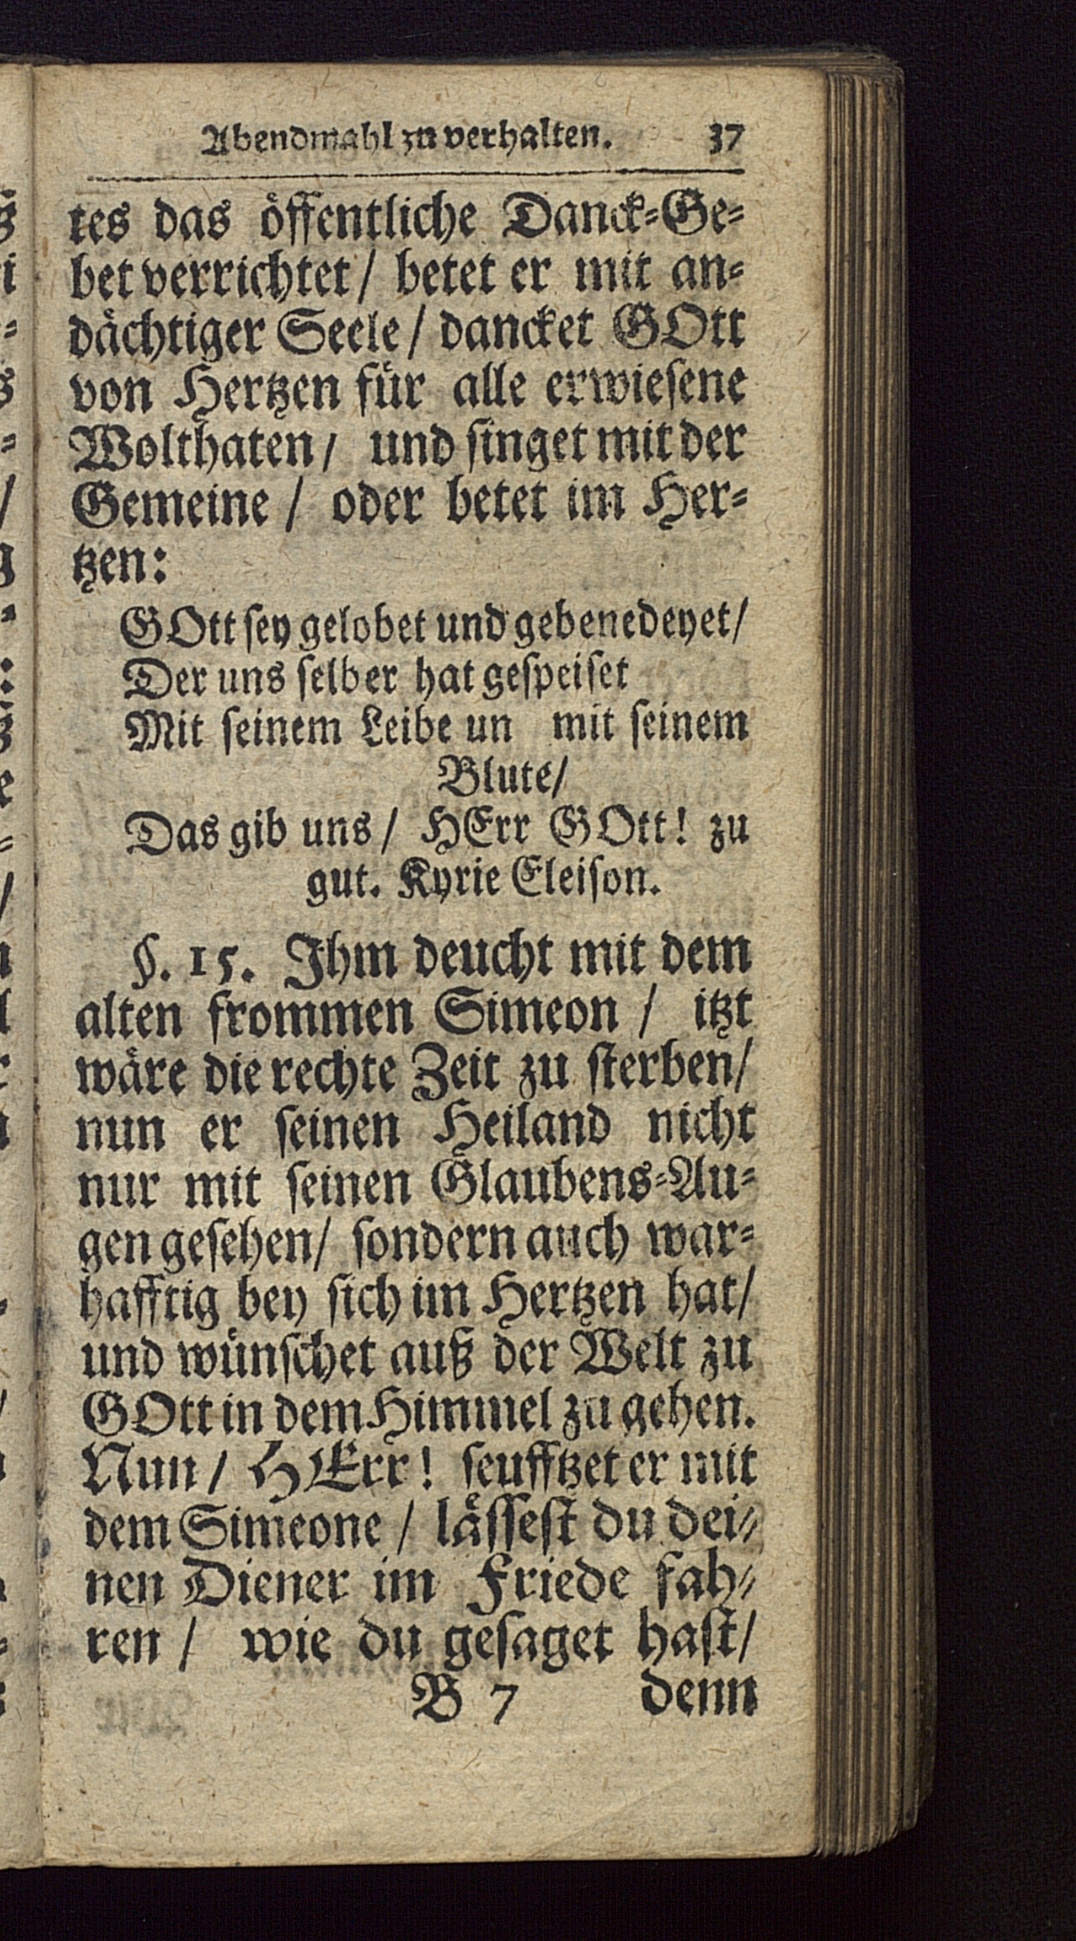 Abendmahl zu verhalten. 37
tes das öffentliche Danck-Ge-
bet verrichtet / betet er mit an-
dächtiger Seele / dancket GOtt
von Hertzen für alle erwiesene
Wolthaten / und singet mit der
Gemeine / oder betet im Her-
tzen:
GOtt sey gelobet und gebenedeyet/
Der uns selber hat gespeiset
Mit seinem Leibe un mit seinem
Blute/
Das gib uns / HErr GOtt! zu
gut. Kyrie Eleison.
§. 15. Ihm deucht mit dem
alten frommen Simeon / itzt
wäre die rechte Zeit zu sterben/
nun er seinen Heiland nicht
nur mit seinen Glaubens-Au-
gen gesehen/ sondern auch war-
hafftig bey sich im Hertzen hat/
und wünschet auß der Welt zu
GOtt in dem Himmel zu gehen.
Nun / HErr! seufftzet er mit
dem Simeone / lässest du dei-
nen Diener im Friede fah-
ren / wie du gesaget hast/
B 7 denn